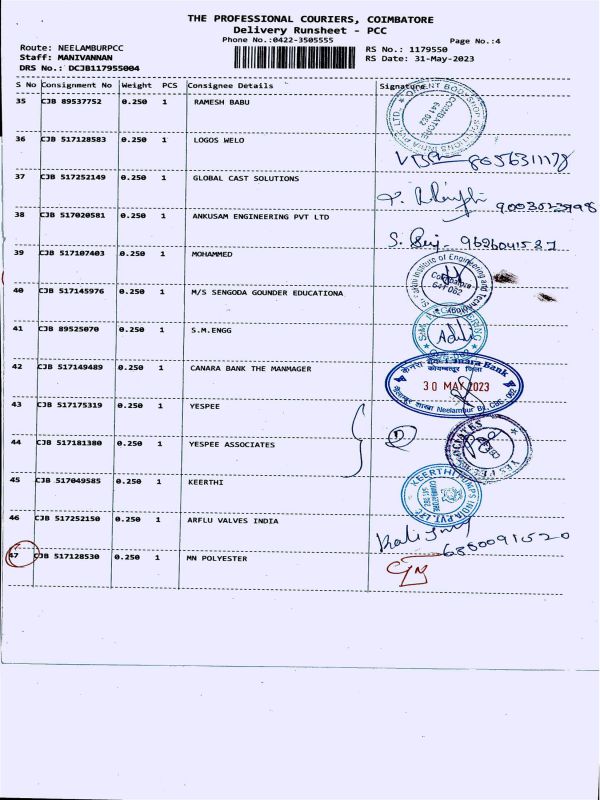 THE PROFESSIONAL COURIERS, COIMBATORE
Delivery Runsheet - PCC
Phone No.:0422-3505555
Page No.:4
Route: NEELAMBURPCC
RS No.: 1179550
Staff: MANIVANNAN
RS Date: 31-May-2023
DRS No.: DCJB117955004
S No Consignment No Weight PCS Consignee Details Signature
35 CJB 89537752 0.250 1 RAMESH BABU
COIMBATORE 641 062
36 CJB 517128583 0.250 1 LOGOS WELO
8056311178
37 CJB 517252149 0.250 1 GLOBAL CAST SOLUTIONS
38 CJB 517020581 0.250 1 ANKUSAM ENGINEERING PVT LTD
S.
39 CJB 517107403 0.250 1 MOHAMMED
Coimbatore 641 062
40 CJB 517145976 0.250 1 M/S SENGODA GOUNDER EDUCATIONA
41 CJB 89525070 0.250 1 S.M.ENGG
42 CJB 517149489 0.250 1 CANARA BANK THE MANMAGER
Canara Bank
30 MAY 2023
Neelambur Br.
43 CJB 517175319 0.250 1 YESPEE
44 CJB 517181380 0.250 1 YESPEE ASSOCIATES
2
45 CJB 517049585 0.250 1 KEERTHI
KEERTHI PUMPS INDIA PVT. LTD.
46 CJB 517252150 0.250 1 ARFLU VALVES INDIA
6380091520
47 CJB 517128530 0.250 1 MN POLYESTER